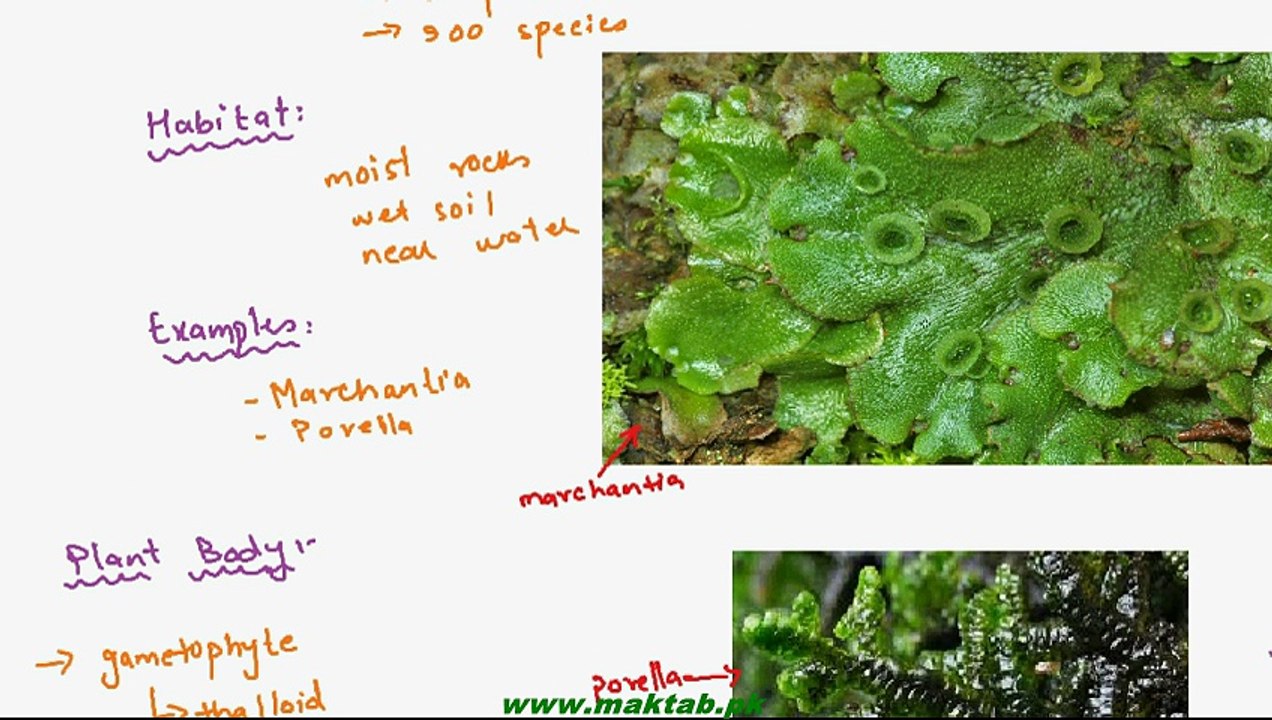 → 900 species
Habitat:
moist rocks
wet soil
near water
Examples:
- Marchantia
- Porella
marchantia
Plant Body:-
→ gametophyte
↳ thalloid
porella
www.maktab.pk